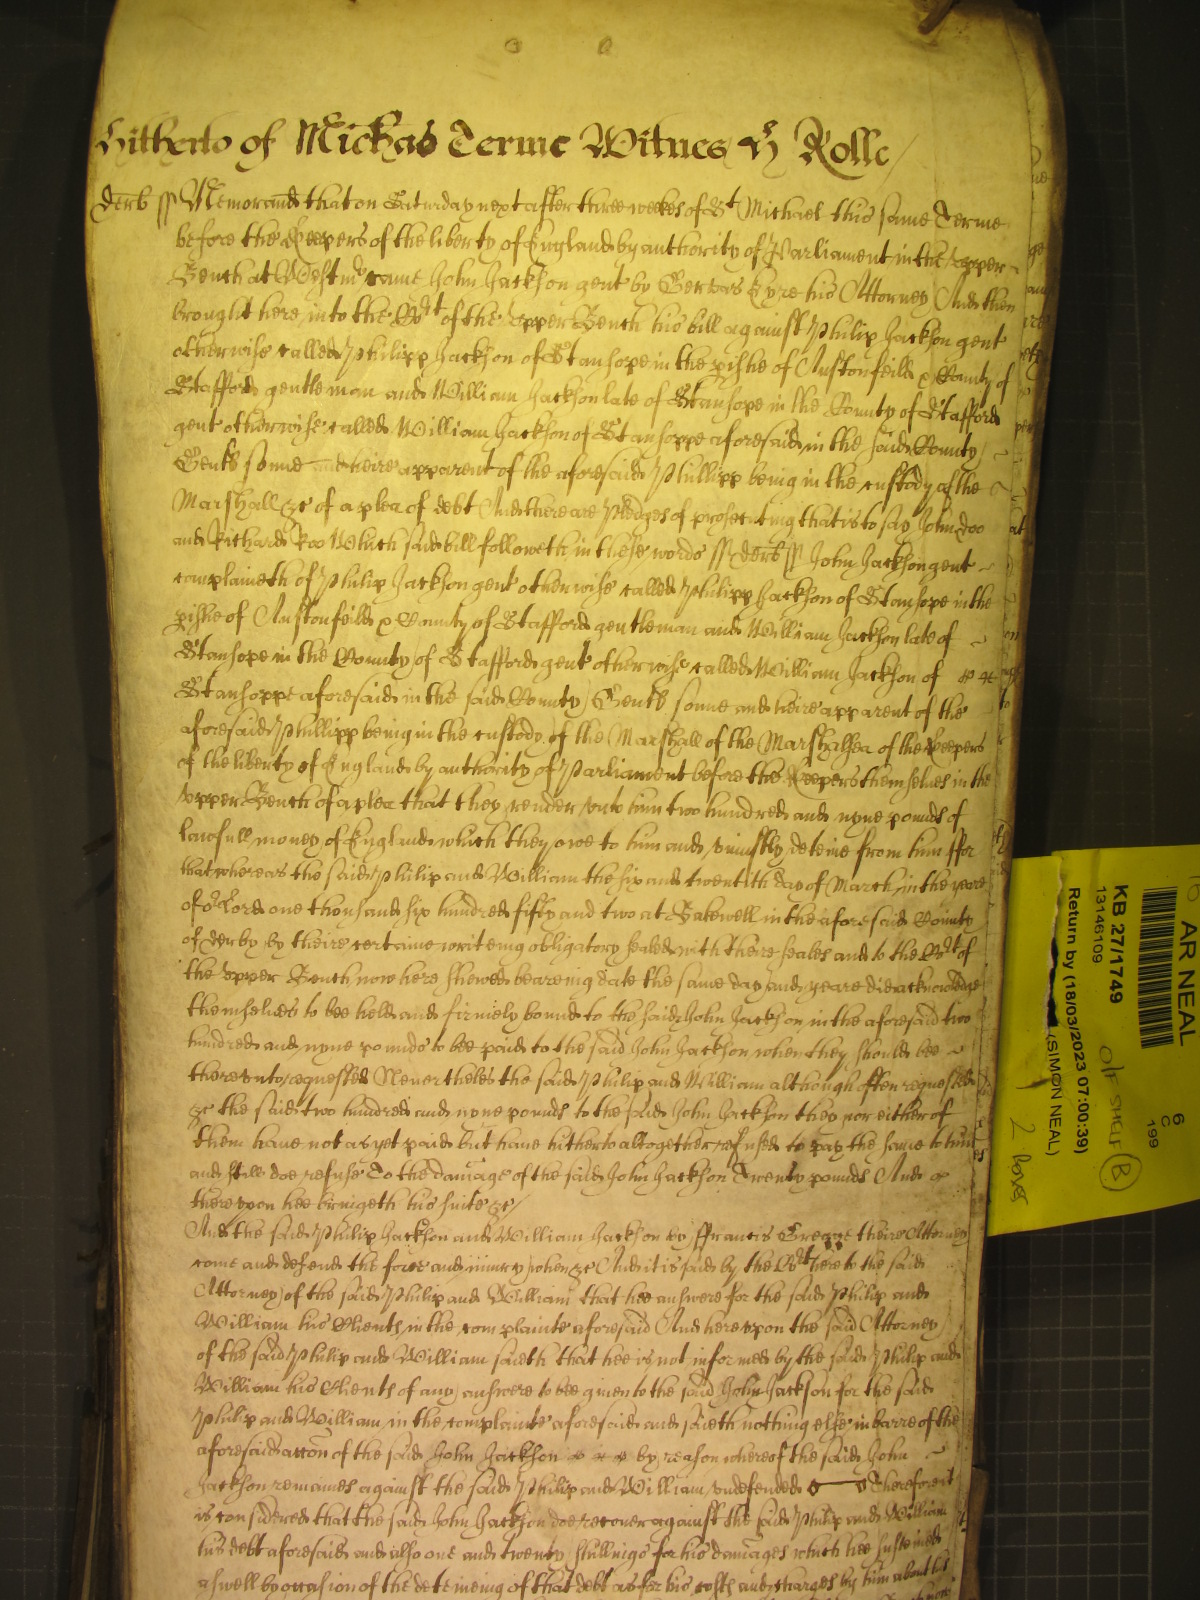 Hitherto of Mich'as Terme Witnes yᵉ Rolle
Derb ss Memorand that on Saturday next after three weekes of Sᵗ Michael this same Terme
before the Keepers of the liberty of England by authority of Parliament in the upper
Bench at Westmʳ came John Jackson gent by Gervas Eyre his Attorney And then
brought here into the Coʳᵗ of the upper Bench his bill against Philip Jackson gent
otherwise called Philipp Jackson of Stansope in the pishe of Anstonfeild & County of
Stafford gentleman and William Jackson late of Stansope in the County of Stafford
gent otherwise called William Jackson of Stansoppe aforesaid in the said County
Gent sonne and heire apparent of the aforesaid Phillipp being in the custody of the
Marshall &c of a plea of debt And there are pledges of prosecuting that is to say John Doo
and Richard Roo Which said bill followeth in these words ss Derb ss John Jackson gent
complaineth of Philip Jackson gent otherwise called Philipp Jackson of Stansope in the
pishe of Anstonfeild & County of Stafford gentleman and William Jackson late of
Stansope in the County of Stafford gent otherwise called William Jackson of
Stansoppe aforesaid in the said County Gent sonne and heire apparent of the
aforesaid Phillipp being in the custody of the Marshall of the Marshalsea of the Keepers
of the liberty of England by authority of Parliament before the Keepers themselves in the
upper Bench of a plea that they render unto him two hundred and nyne pounds of
lawfull money of England which they owe to him and uniustly deteine from him ffor
that whereas the said Philip and William the six and twentith day of March in the yeare
of oʳ Lord one thousand six hundred fifty and two at Bakewell in the aforesaid County
of Derby by theire certaine writeing obligatory sealed with theire seales and to the Coʳᵗ of
the upper Bench now here shewed beareing date the same day and yeare did acknowledge
themselves to bee held and firmely bound to the said John Jackson in the aforesaid two
hundred and nyne pounds to bee paid to the said John Jackson when they should bee
thereunto requested Nevertheles the said Philip and William although often requested
&c the said two hundred and nyne pounds to the said John Jackson they nor either of
them have not as yet paid but have hitherto altogether refused to pay the same to him
and still doe refuse To the damage of the said John Jackson Twenty pounds And
thereupon hee bringeth his suite &c
And the said Philip Jackson and William Jackson by ffrancis Gregge theire Attorney
come and defend the force and iniury when &c And it is said by the Coʳᵗ here to the said
Attorney of the said Philip and William that hee answere for the said Philip and
William his Clients in the complainte aforesaid And hereupon the said Attorney
of the said Philip and William saieth that hee is not informed by the said Philip and
William his Clients of any answere to bee given to the said John Jackson for the said
Philip and William in the complainte aforesaid and saieth nothing else in barre of the
aforesaid accon of the said John Jackson by reason whereof the said John
Jackson remaines against the said Philip and William undefended Therefore it
is considered that the said John Jackson doe recover against the said Philip and William
his debt aforesaid and also one and twenty shillings for his damages which hee susteined
aswell by occasion of the deteineing of that debt as for his costs and charges by him about his
AR NEAL
KB 27/1749
13146109
Return by (18/03/2023 07:00:39)
(SIMON NEAL)
6
C
199
O/F SHELF B
2 boxes